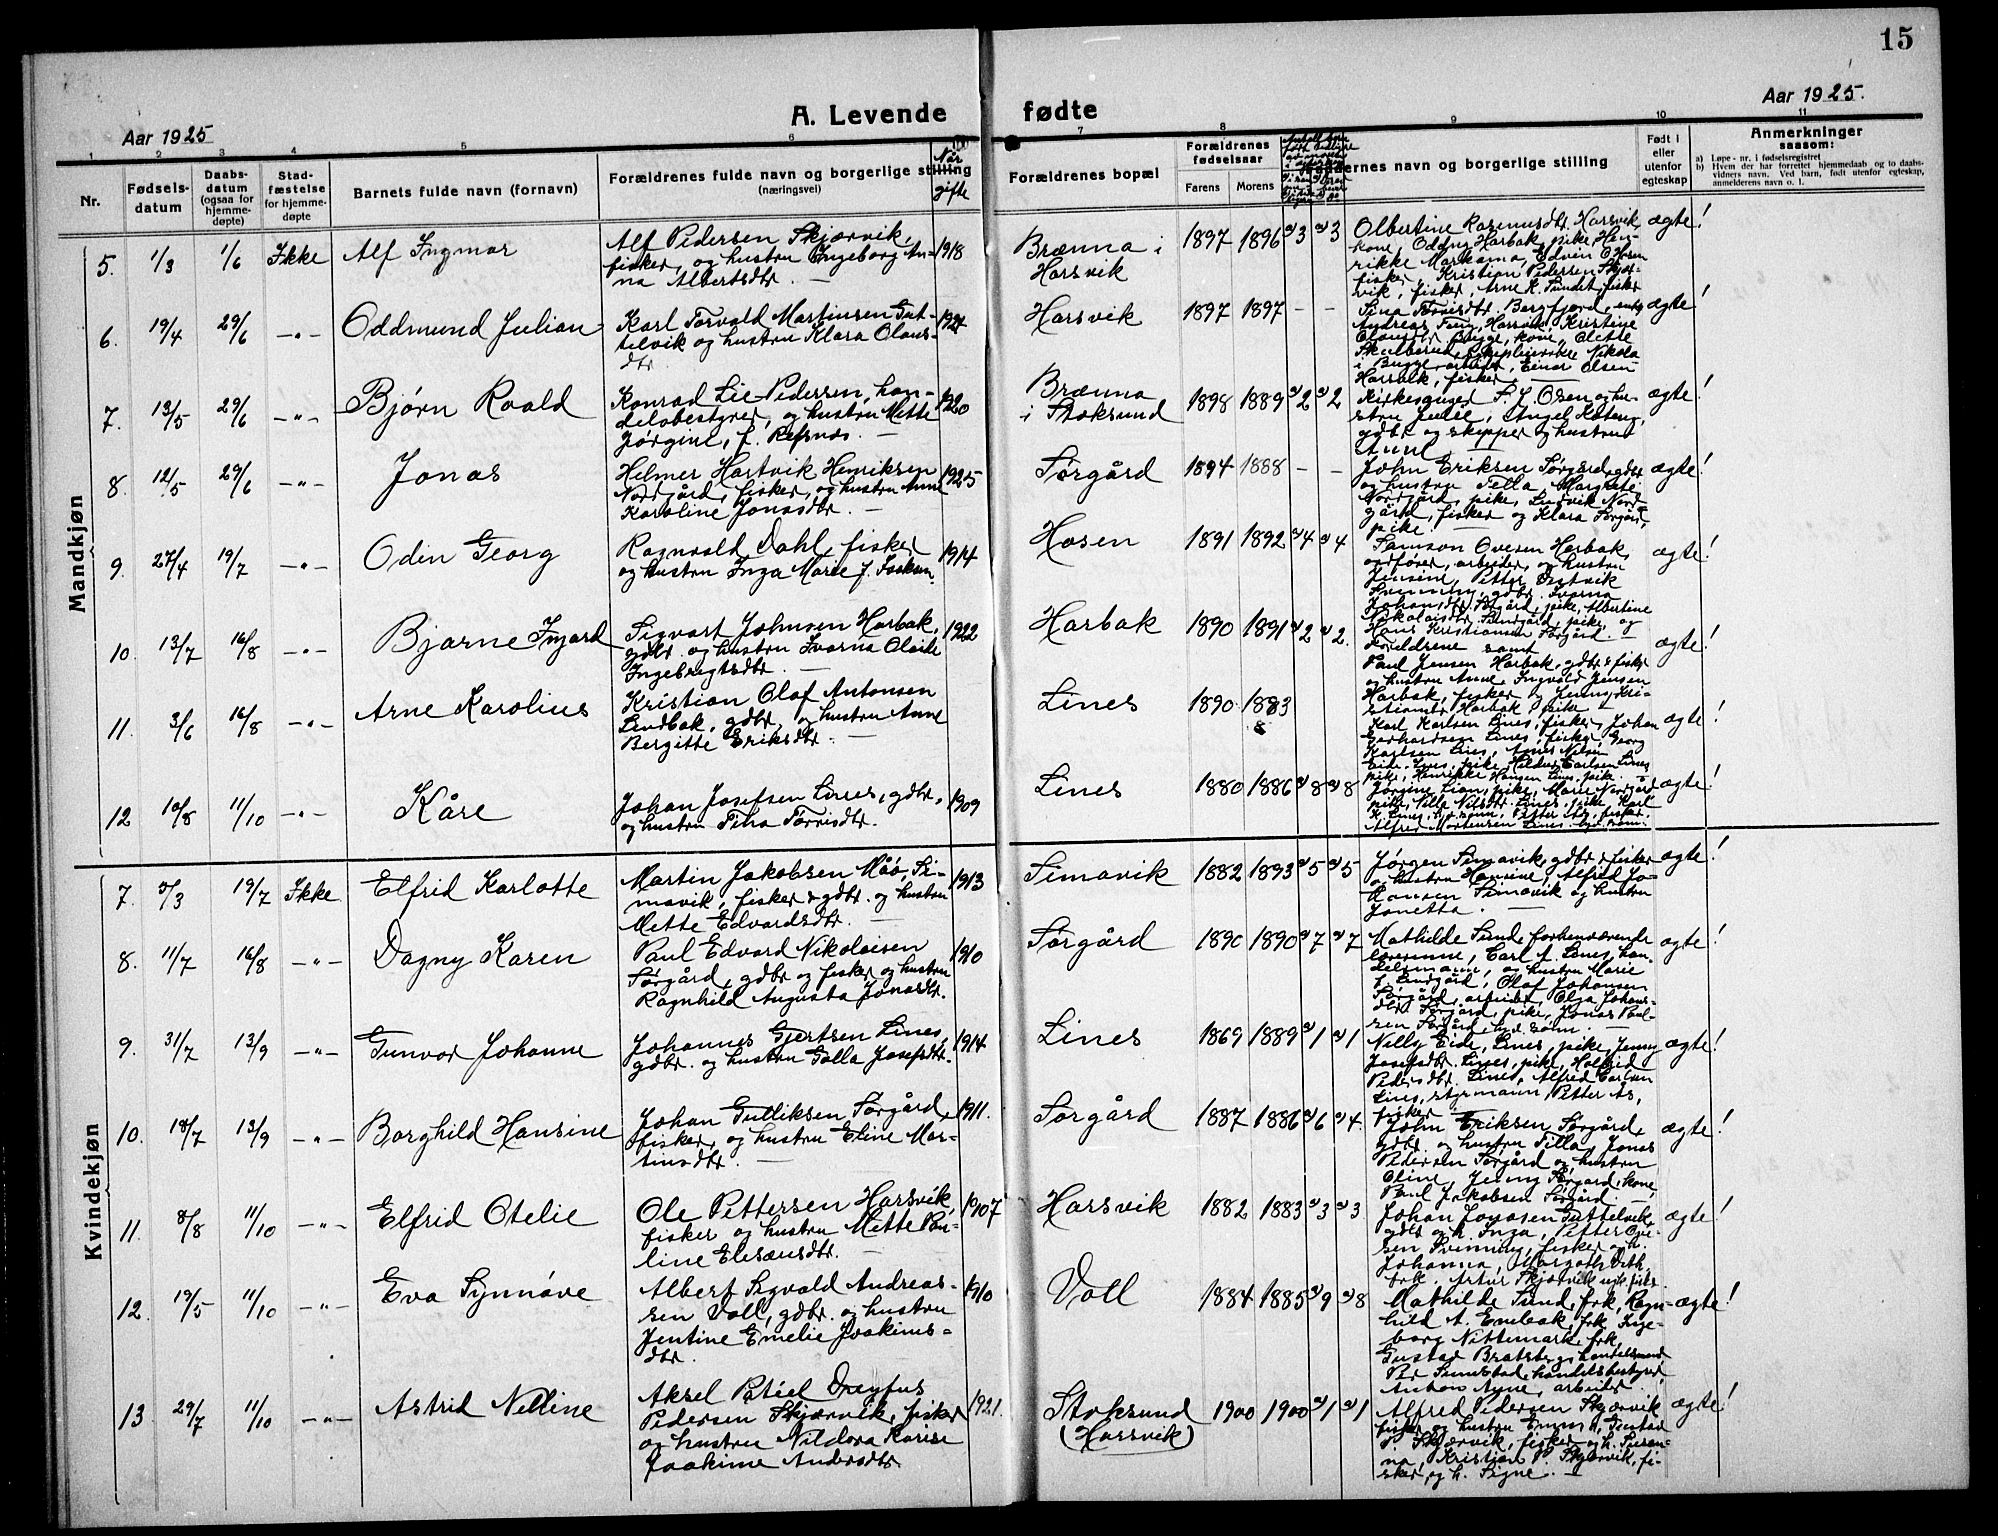 15
Aar 1925
A. Levende fødte
Aar 1925.
1 2 3 4 5 6 7 8 9 10 11
Nr.
Fødsels-
datum
Daabs-
datum
(ogsaa for
hjemme-
døpte)
Stad-
fæstelse
for hjemme-
døpte
Barnets fulde navn (fornavn)
Forældrenes fulde navn og borgerlige stilling
(næringsvei)
Når
gifte
Forældrenes bopæl
Forældrenes
fødselsaar
Farens Morens
Faddernes navn og borgerlige stilling
Født i
eller
utenfor
egteskap
Anmerkninger
saasom:
a) Løpe-nr. i fødselsregistret
b) Hvem der har forrettet hjemmedaab og to daabs-
vidners navn. Ved barn, født utenfor egteskap,
anmelderens navn o. l.
Mandkjøn
5. 1/3 1/6 Ikke Alf Ingmar
Alf Pedersen Skjærvik,
fisker, og hustru Ingeborg An-
na Albertsdtr. —
1918
Brænna i
Harsvik
1897 1896 3 3
Olbertine Rasmusdtr. Harsvik,
kone, Oddny Harbak, pike, Hen-
rikke Markama, Edvin O Hosen
fisker, Kristian Pedersen Skjær-
vik, fisker, Arne K. Sundet, fisker
ægte!
6. 19/4 29/6 —"— Oddmund Julian
Karl Torvald Martinsen Gut-
telvik og hustru Klara Olaus-
dtr.
1924
Harsvik
1897 1897 - -
Harsvik, fisker. —
ægte!
7. 13/5 29/6 —"— Bjørn Roald
Konrad Lie Pedersen, han-
delsbestyrer, og hustru Mette
Jørgine, f. Refsnes. —
1920
Brænna
i Stoksund
1898 1889 2 2
Kirkesanger F. L. Osen og hu-
stru Julie, Angel Hoteng,
gdbr og skipper og hustru
Anne
ægte!
8. 12/5 29/6 —"— Jonas
Helmer Hartvik Henriksen
Nordgård, fisker, og hustru Anne
Karoline Jonasdtr. —
1925
Sørgård
1894 1888 - -
John Eriksen Sørgård, gdbr
og hustru Tilla, Margrete
Nordgård, pike, Ludvik Nord-
gård, fisker og Klara Sørgård,
pike
ægte!
9. 27/4 19/7 —"— Odin Georg
Ragnvald Dahl, fisker
og hustru Inga Marie J. Isaksen.
1914
Hosen
1891 1892 4 4
Samson Ovesen Harbak,
ordfører, arbeider, og hustru
Jensine, Petter Ovesvik
Svenning, gdbr. Ivarna
Johansdtr. Sørgård, pike, Albertine
Nikolaisdtr. Sundgård, pike, og
Hans Kristiansen Sørgård.
ægte!
10. 13/7 16/8 —"— Bjarne Ingard
Sigvart Johnsen Harbak,
gdbr. og hustru Ivarna Oleite
Ingebregtsdtr. —
1922
Harbak
1890 1891 2 2.
Foreldrene samt
Paul Jensen Harbak, gdbr & fisker
og hustru Anne, Ingvald Jensen
Harbak, fisker og Jenny Kri-
stiansdtr Harbak pike
ægte!
11. 3/6 16/8 —"— Arne Karolius
Kristian Olaf Antonsen
Lindbak, gdbr, og hustru Anne
Bergitte Eriksdtr. —
Lines
1890 1883
Karl Karlsen Lines, fisker, Johan
Gerhardsen Lines, fisker, Georg
Karlsen Lines, Agnes Nilsen
Eide, Lines, pike, Hilda Carlsen Lines
pike, Henrikke Hansen Lines, pike.
ægte!
12 10/8 11/10 —"— Kåre
Johan Josefsen Lines, gdbr,
og hustru Tina Torrisdtr.
1909
Lines
1880 1886 8 8
Jørgine Lian, pike, Marie Nordgård
pike, Nilla Nilsdtr. Lines, pike, Karl
Alfred Mortensen Lines
ægte!
Kvindekjøn
7. 5/3 19/7 Ikke Elfrid Karlotte
Martin Jakobsen Møø, Si-
mavik, fisker & gdbr. og hustru
Mette Edvardsdtr. —
1913
Simavik
1882 1893 5 5
Jørgen Simavik, gdbr & fisker
og hustru Hansine, Alfred Jo-
hansen Simavik og hustru
Jonetta. —
ægte!
8. 11/7 16/8 —"— Dagny Karen
Paul Edvard Nikolaisen
Sørgård, gdbr og fisker og hustru
Ragnhild Augusta Jonasdtr.
1910
Sørgård
1890 1890 7 7
Mathilde Sund, forhenværende
lærerinne, Carl J. Lines, han-
delsmann, og hustru Marie
f. Sundgård, Olaf Johansen
Sørgård, arbeider, Olga Johans-
dtr Sørgård, pike, Jonas Paul-
sen Sørgård,
ægte!
9. 31/7 13/9 —"— Gunvor Johanne
Johannes Gjertsen Lines,
gdbr. og hustru Golla Josefsdtr.
1914
Lines
1869 1889 1 1
Nilly Eide, Lines, pike, Jenny
Josefsdtr. Lines, pike, Halfrid
Pedersdtr. Lines, Alfred Carlsen
Lines, styrmann, Petter As,
fisker
ægte!
10. 18/7 13/9 —"— Borghild Hansine
Johan Gulliksen Sørgård,
fisker, og hustru Eline Mar-
tinsdtr. —
1911.
Sørgård
1887 1886 6 4.
John Eriksen Sørgård,
gdbr. og hustru Tilla, Jonas
Pedersen Sørgård og hustru
Oline, Jenny Sørgård, kone,
Paul Jakobsen Sørgård.
ægte!
11. 8/8 11/10 —"— Elfrid Otelie
Ole Pettersen Harsvik,
fisker og hustru Mette Pau-
line Elesæusdtr. —
1907
Harsvik
1882 1883 3 3
Johan Jonasen Guttelvik,
gdbr og h. Inga, Petter Ove-
sen Svenning, fisker og h.
Johanna, Margoth Veth,
frk. Artur Skjærvik ugk. fisk.
ægte!
12. 19/5 11/10 —"— Eva Synnøve
Albert Sigvald Andreas-
sen Voll, gdbr. og hustru
Jentine Emelie Joakims-
dtr.
1910
Voll
1884 1885 9 8
Mathilde Sund, frk, Ragn-
hild A. Enebak, frk Inge-
borg Nittemark, frk,
Gustad Bratsberg, handelsmand
Per Sumstad, handelsbestyrer
Anton Ayne, arbeider.
ægte!
13 29/7 11/10 —"— Astrid Nelline
Aksel Patiel Dreyfus
Pedersen Skjærvik, fisker
og hustru Nildora Karise
Joakime Andersdtr
1921.
Stoksund
(Harsvik)
1900 1900 1 1
Alfred Pedersen Skjærvik
fisker og hustru Emma, Gustad
P. Skjærvik, fisker og h. Susan-
na, Kristian P. Skjærvik, fi-
sker, og h. Signe.
ægte!